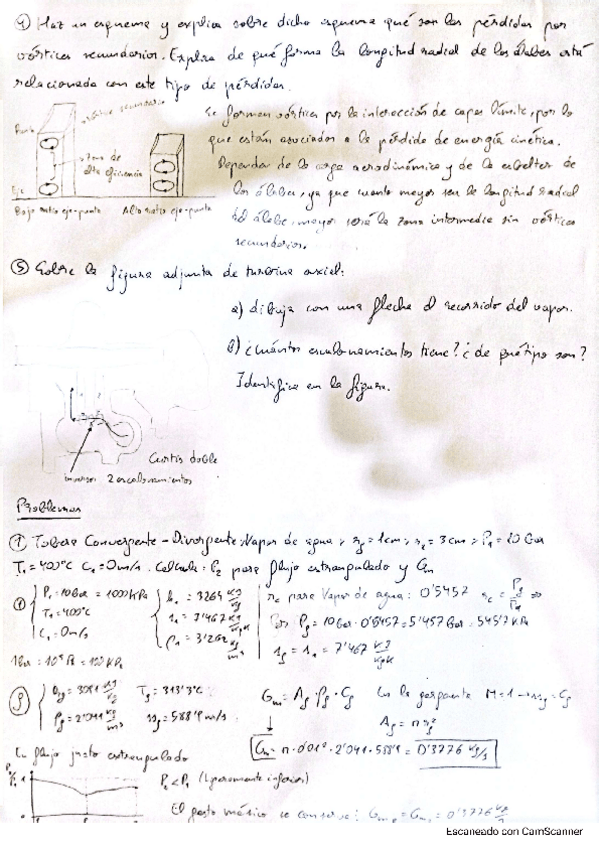 ④ Haz un esquema y explica sobre dicho esquema qué son las pérdidas por
vórtices secundarios. Explica de qué forma la longitud radial de los álabes está
relacionada con este tipo de pérdidas.
Punta
zona de
alta eficiencia
Eje
Bajo ratio eje-punta Alto ratio eje-punta
Se forman vórtices por la interacción de capas límite, por lo
que están asociados a la pérdida de energía cinética.
Dependen de la carga aerodinámica y de la esbeltez de
los álabes, ya que cuanto mayor sea la longitud radial
del álabe, mayor será la zona intermedia sin vórtices
secundarios.
⑤ Sobre la figura adjunta de turbina axial:
a) dibuja con una flecha el recorrido del vapor.
b) ¿cuántos escalonamientos tiene? ¿de qué tipo son?
Identifica en la figura.
Curtis doble
inversor 2 escalonamientos
Problemas
① Tobera Convergente - Divergente: Vapor de agua, rg = 1cm, r2 = 3cm, P1 = 10 bar
T1 = 400°C C1 = 0m/s. Calcula: P2 para flujo estrangulado y Gm
① P1 = 10bar = 1000 kPa
T1 = 400°C
C1 = 0m/s
h1 = 3264 kJ/kg
s1 = 7'467 kJ/kgK
ρ1 = 3'262 kg/m³
rc para Vapor de agua: 0'5457 rc = Pg/P1 ⇒
Pg = 10bar · 0'5457 = 5'457 bar = 545'7 kPa
sg = s1 = 7'467 kJ/kgK
1bar = 10⁵ Pa = 100 kPa
Tg = 313'3°C
ρg = 2'041 kg/m³ 588'9 m/s
Gm = Ag · ρg · Cg En la garganta M=1
Ag = π rg²
Gm = π · 0'01² · 2'041 · 588'9 = 0'3776 kg/s
En flujo justo estrangulado
P2 < P1 (ligeramente inferior)
El gasto másico se conserva: = 0'3776 kg/s
Escaneado con CamScanner